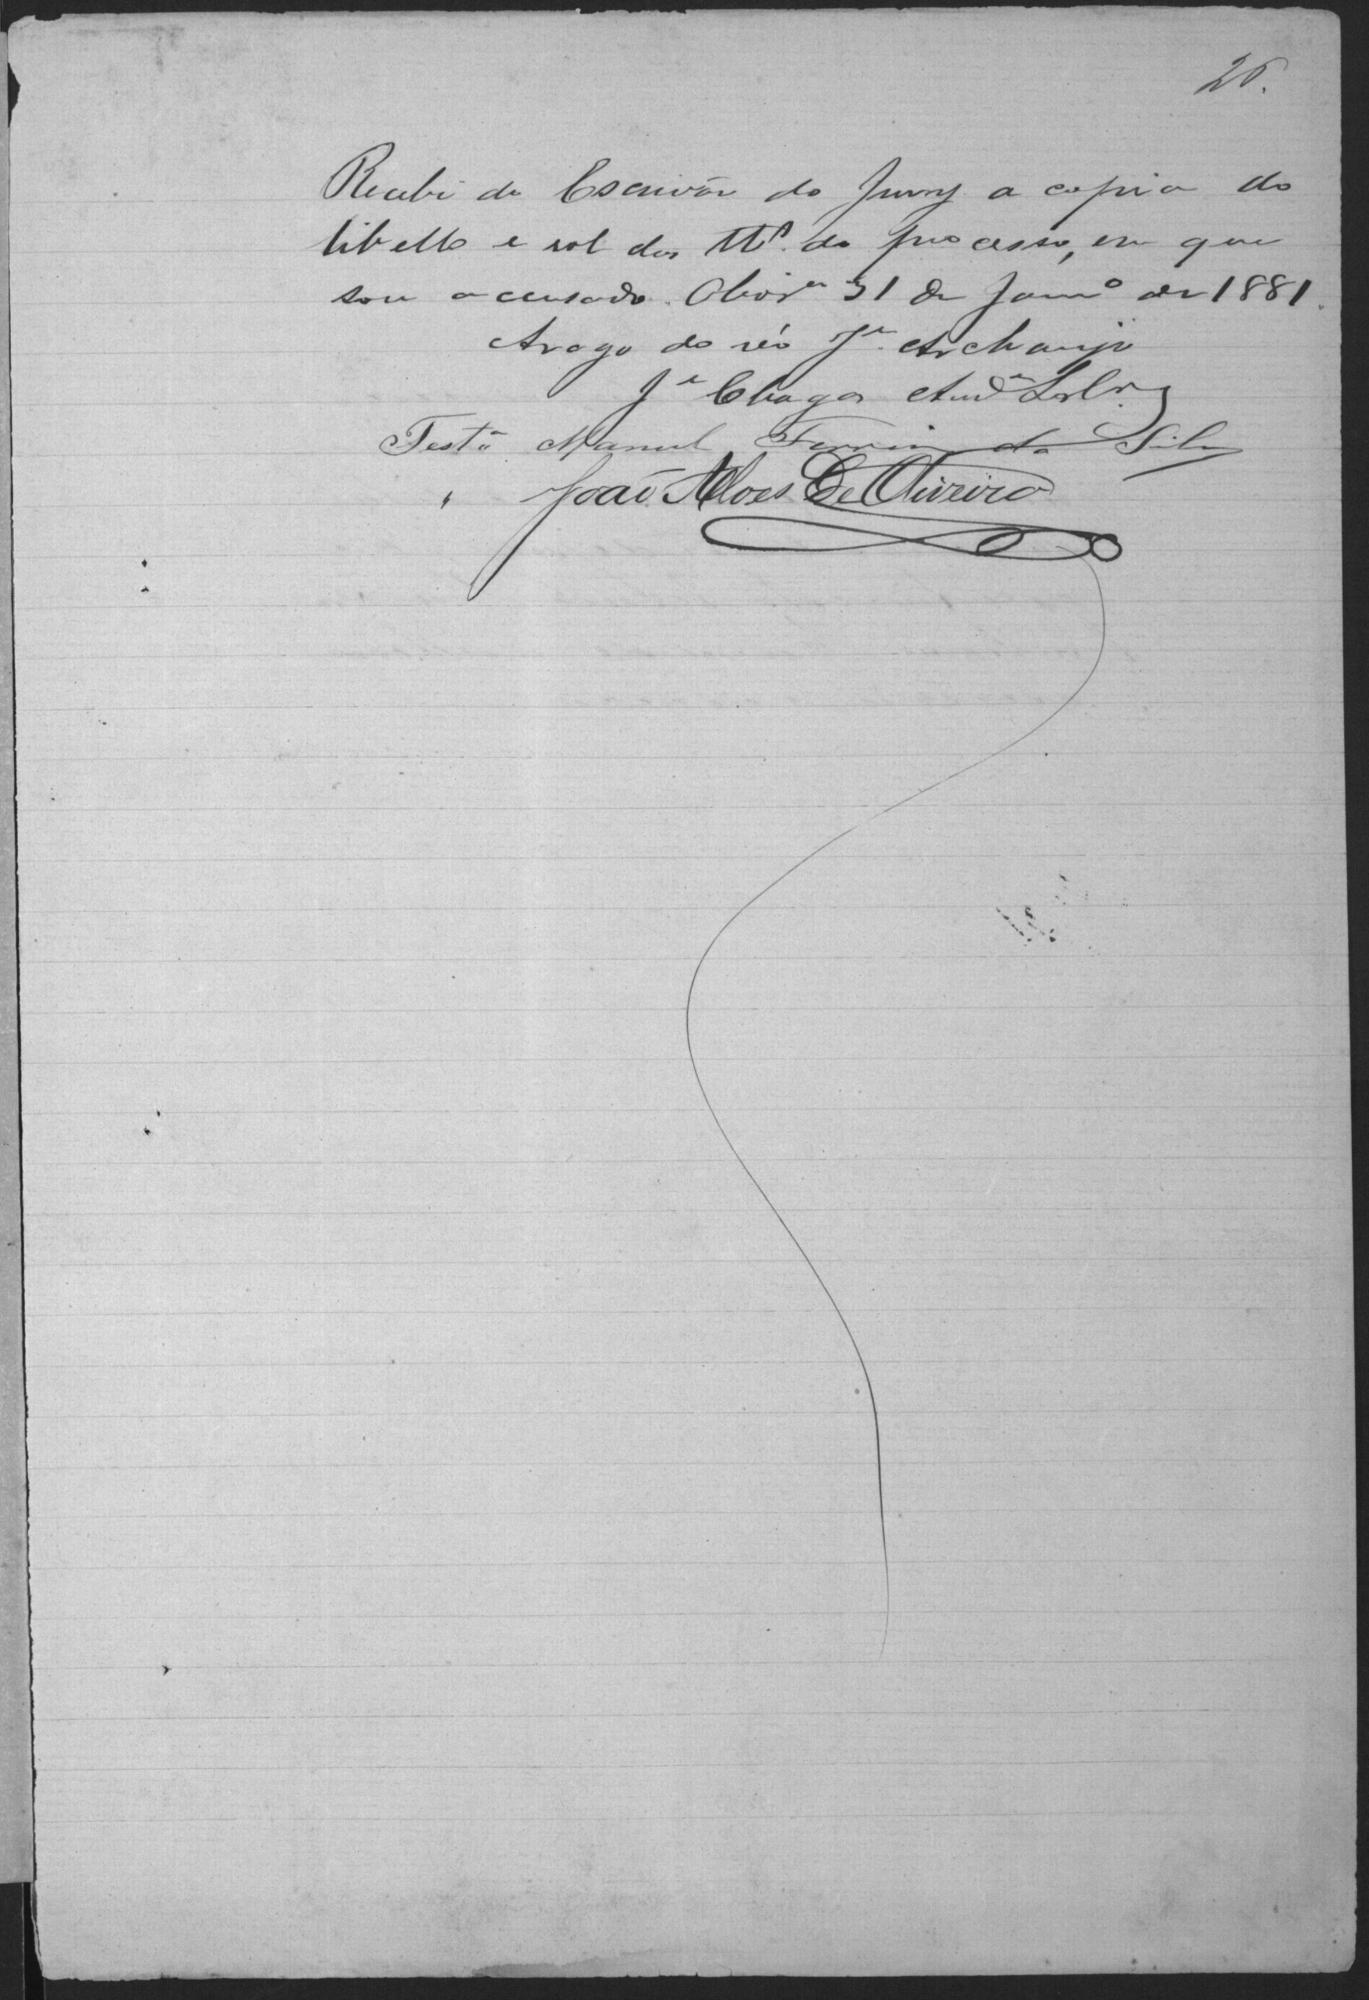 26.
Recebi do Escrivão do Jury a copia do
libello e rol das tt.as do processo, em que
sou accusado. 31 de Jan.o de 1881.
Arogo do réo J.e Archanjo
J.e Chagas And.e
Test.a Manuel Ferreira da Silva
" João Alves De Oliveira